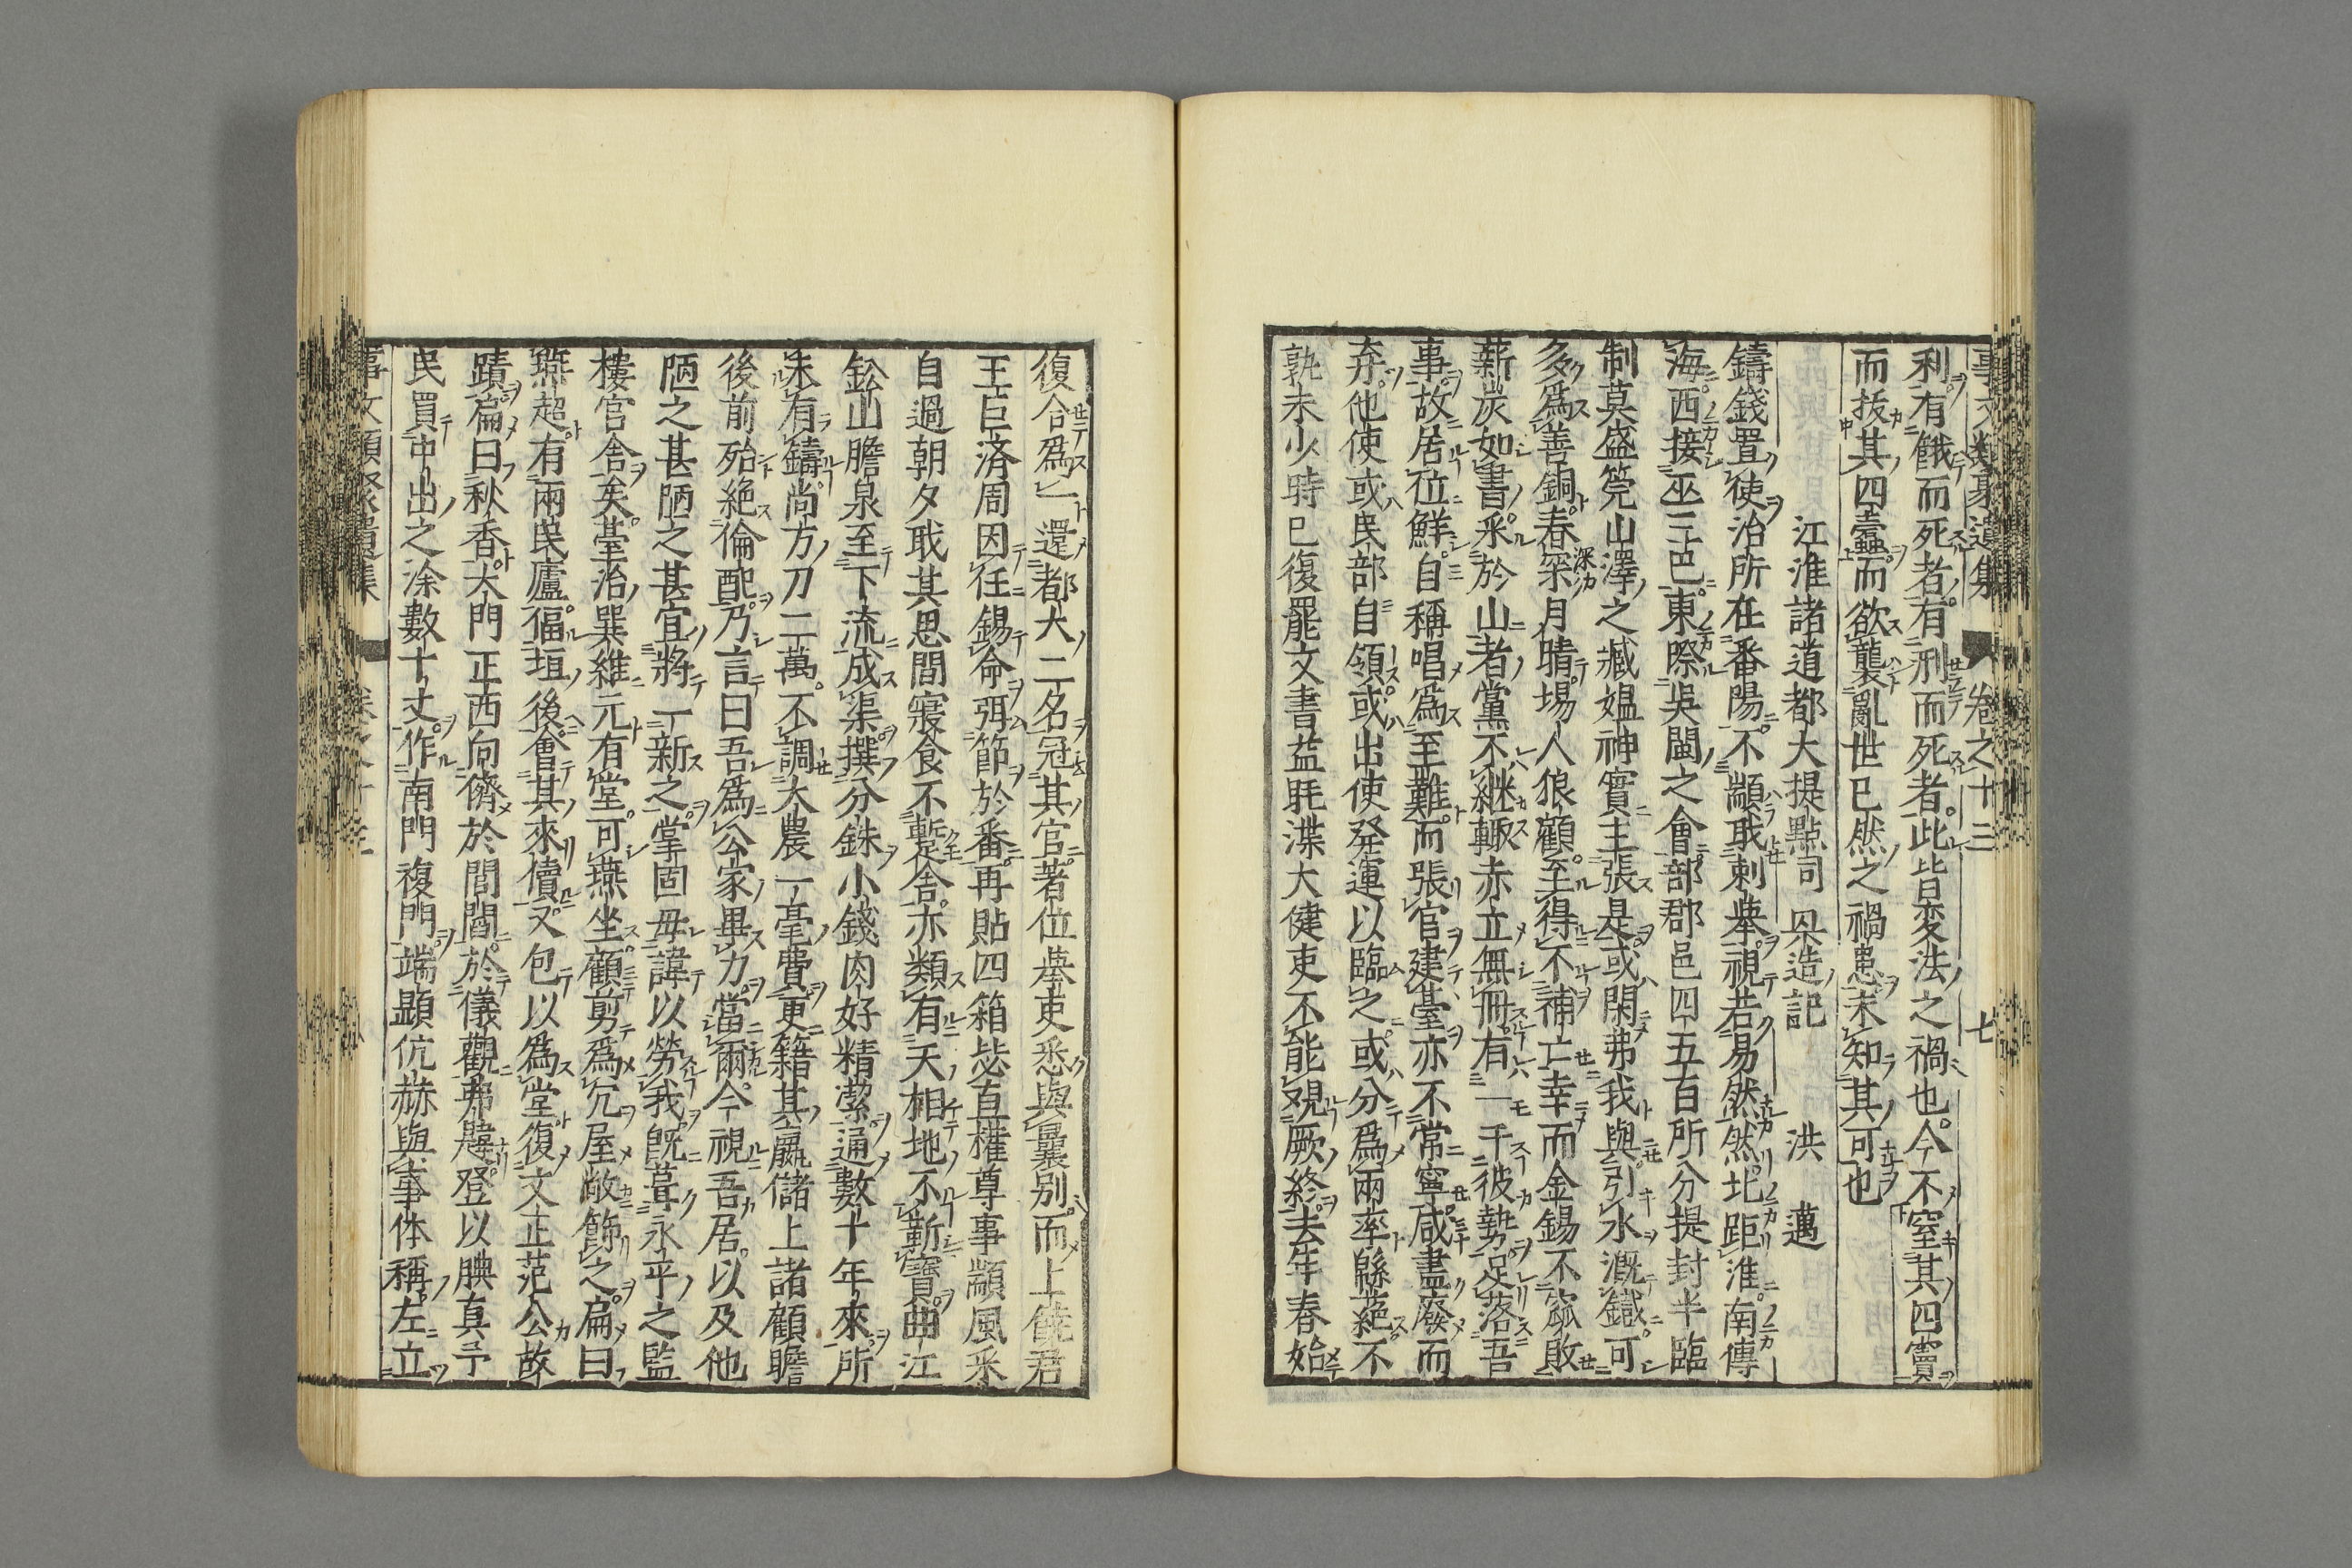 事文類聚遺集 卷之十三 七
利有餓而死者有刑而死者此皆変法之禍也今不窒其四竇
而拔其四蠹而欲襲亂世已然之禍患未知其可也
江淮諸道都大提點司 造記 洪 邁
鑄錢置使治所在番陽不顓戢刺舉視若易然然北距淮南傳
海西接巫三巴東際吳閩之會部郡邑四五百所分提封半臨
制莫盛筦山澤之藏媼神實主張是或閑弗我與引水漑鐵可
多爲善銅春罙月晴埸人狼顧至得不補亡幸而金錫不窳敗
薪炭如書釆於山者黨不継輙赤立無冊有一千彼埶足落吾
事故居位鮮自稱唱爲至難而張官建臺亦不常寧咸盡廢而
弃他使或民部自領或出使発運以臨之或分爲兩率緜蕝不
孰未少時已復罷文書益眊渫大健吏不能覌厥終去年春始
復合爲一還都大二名冠其官著位莽吏悉與曩別而上饒君
王巨済周因任錫命弭節於番再貼四箱毖直權尊事顓風釆
自過朝夕戢其思間寢食不蹔舍亦類有天相地不靳寶曲江
鈆山膽泉至下流成渠撰分銖小錢肉好精潔通數十年來所
未有鑄尚方刀二萬不調大農一毫費更籍其羸儲上諸顧瞻
後前殆絶倫配乃言曰吾爲公家畢力當爾今視吾居以及他
陋之甚陋之甚宜將一新之掌固毋諱以勞我旣葺永平之監
樓官舍矣臺治巽維元有堂可燕坐顧剪爲宂屋敞飾之扁曰
燕超有兩民廬偪垣後會其來儥又包以爲堂復文正范公故
蹟扁曰秋香大門正西向儕於閭閻於儀觀弗韙登以腆真予
民買中出之涂數十丈作南門複門端顯伉赫與事体稱左立